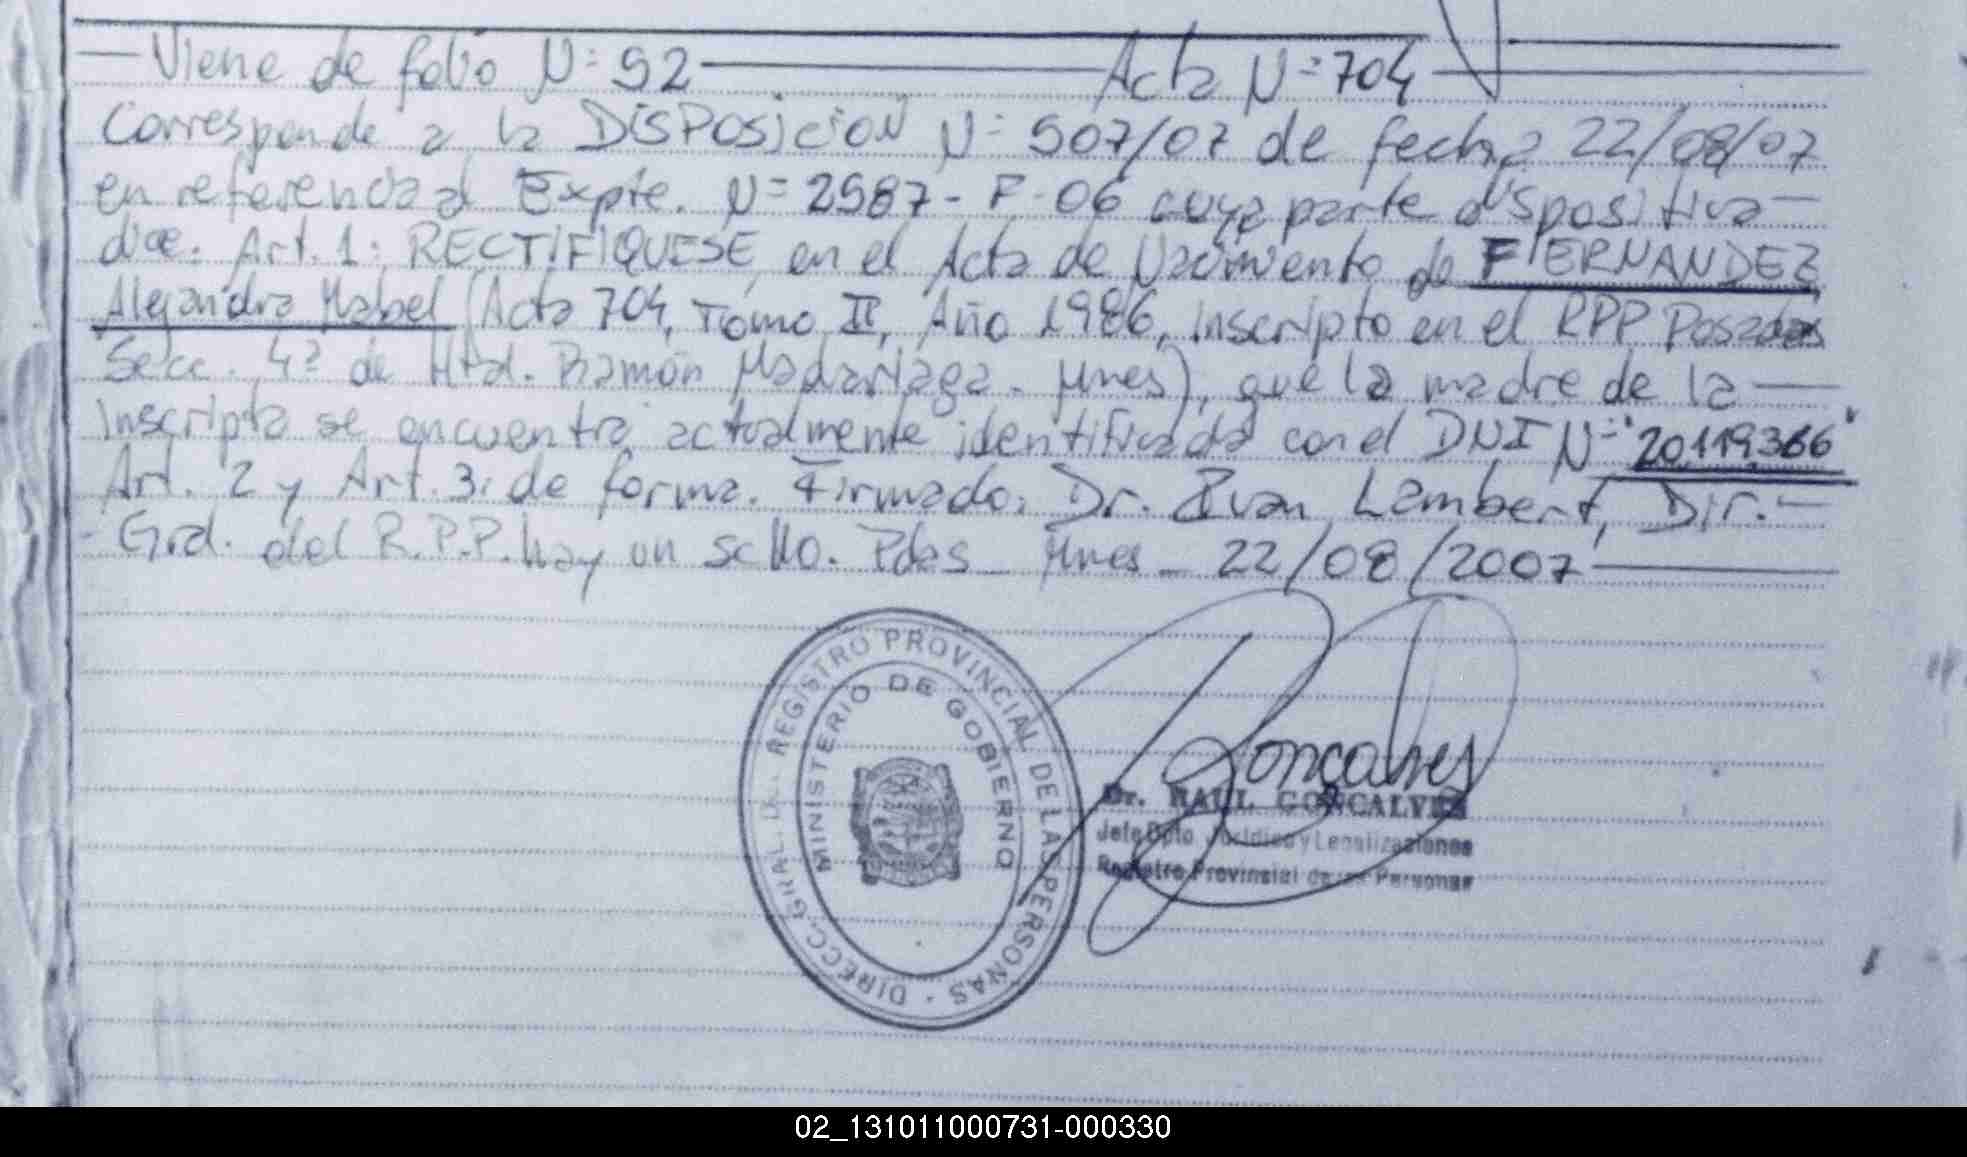 Viene de folio Nº 92 Acta Nº 704
Corresponde a la DISPOSICION Nº 507/07 de fecha 22/08/07
en referencia al Expte. Nº 2587 - F - 06 cuya parte dispositiva
dice. Art. 1: RECTIFIQUESE, en el Acta de Nacimiento de FERNANDEZ
Alejandra Mabel (Acta 704, Tomo II, Año 1986, inscripto en el RPP Posadas
Secc. 4ª de Htal. Ramón Madariaga - Mnes), que la madre de la
Inscripta se encuentra actualmente identificada con el DNI Nº "20.119.366"
Art. 2 y Art. 3: de forma. Firmado: Dr. Ivan Lambert, Dir.
Gral. del R.P.P. hay un sello. Pdas - Mnes - 22/08/2007
DIRECC. GRAL. DEL REGISTRO PROVINCIAL DE LAS PERSONAS
MINISTERIO DE GOBIERNO
Gonçalves
Dr. RAUL GONÇALVES
Jefe Dpto. Jurídico y Legalizaciones
Registro Provincial de las Personas
02_131011000731-000330